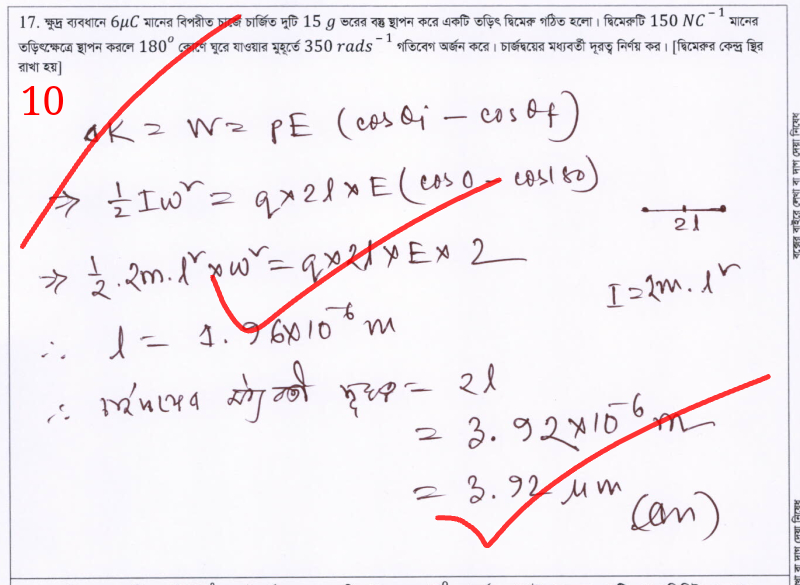 17. ক্ষুদ্র ব্যবধানে 6μC মানের বিপরীত চার্জে চার্জিত দুটি 15 g ভরের বস্তু স্থাপন করে একটি তড়িৎ দ্বিমেরু গঠিত হলো। দ্বিমেরুটি 150 NC⁻¹ মানের
তড়িৎক্ষেত্রে স্থাপন করলে 180° কোণে ঘুরে যাওয়ার মুহূর্তে 350 rads⁻¹ গতিবেগ অর্জন করে। চার্জদ্বয়ের মধ্যবর্তী দূরত্ব নির্ণয় কর। [দ্বিমেরুর কেন্দ্র স্থির
রাখা হয়]
10
ΔK = W = PE (cosθi − cosθf)
⇒ ½Iω² = q×2l×E (cos0 − cos180)
2l
⇒ ½·2m·l²×ω² = q×2l×E×2
I=2m·l²
∴ l = 1.96×10⁻⁶ m
∴ চার্জদ্বয়ের মধ্যবর্তী দূরত্ব = 2l
= 3.92×10⁻⁶ m
= 3.92 μm
(Ans)
বক্সের বাইরে লেখা বা দাগ দেয়া নিষেধ